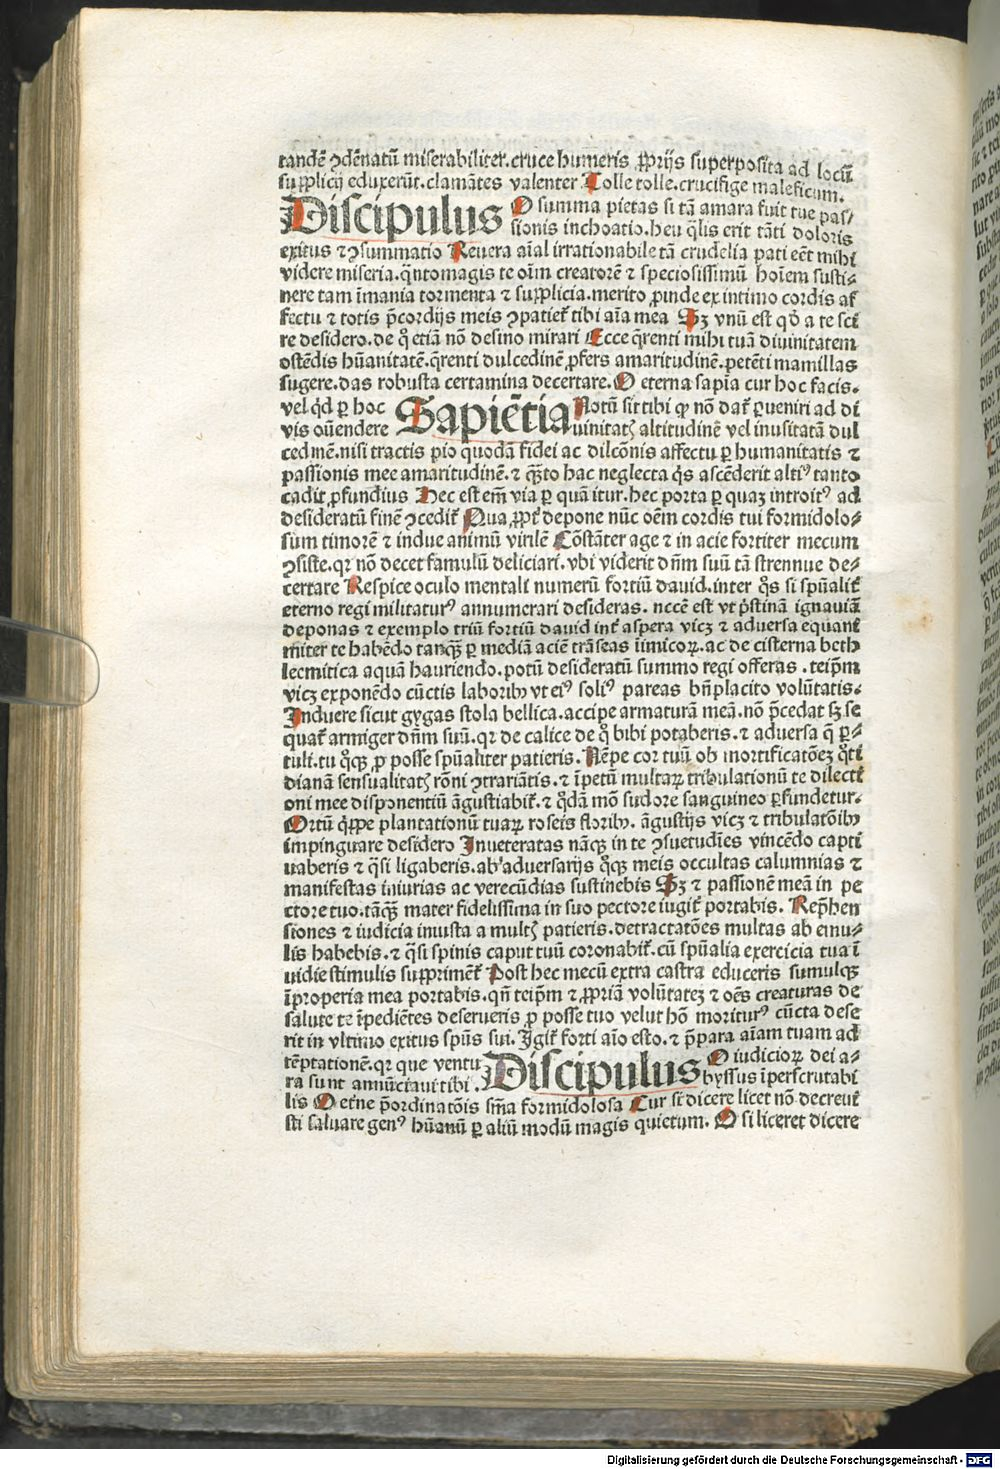 tandē ꝯdēnatū miserabiliter. cruce humeris ꝓprijs superposita ad locū
supplicij eduxerūt. clamātes valenter Tolle tolle. crucifige maleficum.
Discipulus O summa pietas si tā amara fuit tue pas⸗
sionis inchoatio. heu q̄lis erit tāti doloris
exitus ⁊ ꝯsummatio Reuera aīal irrationabile tā crudelia pati eēt mihi
videre miseria. q̄ntomagis te oīm creatorē ⁊ speciosissimū hoīem susti⸗
nere tam īmania tormenta ⁊ supplicia. merito ꝓinde ex intimo cordis af
fectu ⁊ totis p̄cordijs meis ꝯpatiet᷑ tibi aīa mea Sꝫ vnū est qd̓ a te sci
re desidero. de qͦ etiā nō desino mirari Ecce q̄renti mihi tuā diuinitatem
ostēdis hūanitatē. q̄renti dulcedinē ꝓfers amaritudinē. petēti mamillas
sugere. das robusta certamina decertare. O eterna sapīa cur hoc facis.
vel qͥd ꝑ hoc Sapiētia Notū sit tibi ꝙ nō dat᷑ ꝑueniri ad di
vis oūendere uinitatꝭ altitudinē vel inusitatā dul
cedinē. nisi tractis pio quodā fidei ac dilcōnis affectu ꝑ humanitatis ⁊
passionis mee amaritudinē. ⁊ q̄ꝫto hac neglecta qͥs ascēderit altiꝰ tanto
cadit ꝓfundius Hec est em̄ via ꝑ quā itur. hec porta ꝑ quaꝫ introitꝰ ad
desideratū finē ꝯcedit᷑ Qua ꝓpt᷑ depone nūc oēm cordis tui formidolo⸗
sum timorē ⁊ indue animū virilē Cōstāter age ⁊ in acie fortiter mecum
ꝯsiste. qꝛ nō decet famulū deliciari. vbi viderit dn̄m suū tā strennue de⸗
certare Respice oculo mentali numerū fortiū dauid. inter qͦs si spūalit᷑
eterno regi militaturꝰ annumerari desideras. nccē est vt p̄stinā ignauiā
deponas ⁊ exemplo triū fortiū dauid int᷑ aspera vicꝫ ⁊ aduersa equani
miter te habēdo tanqꝫ̄ ꝑ mediā aciē trāseas īimicoꝝ. ac de cisterna beth
leemitica aquā hauriendo. potū desideratū summo regi offeras. teip̄m
vicꝫ exponēdo cūctis laboribꝫ vt eiꝰ soliꝰ pareas bn̄placito volūtatis.
Induere sicut gygas stola bellica. accipe armaturā meā. nō p̄cedat sꝫ se
quat᷑ armiger dn̄m suū. qꝛ de calice de qͦ bibi potaberis. ⁊ aduersa q̄ ꝑ⸗
tuli. tu qͦqꝫ ꝓ posse spūaliter patieris. Nēpe cor tuū ob mortificatōeꝫ qͦti
dianā sensualitatꝭ rōni ꝯtrariātis. ⁊ īpetū multaꝝ tribulationū te dilecti
oni mee disponentiū āgustiabit᷑. ⁊ qͦdā mō sudore sanguineo ꝑfundetur.
Ortū qͥppe plantationū tuaꝝ roseis floribꝫ. āgustijs vicꝫ ⁊ tribulatōibꝫ
impinguare desidero Inueteratas nāqꝫ in te ꝯsuetudīes vincēdo capti
uaberis ⁊ q̄si ligaberis. ab aduersarijs qͦqꝫ meis occultas calumnias ⁊
manifestas iniurias ac verecūdias sustinebis Sꝫ ⁊ passionē meā in pe
ctore tuo. tāqꝫ̄ mater fidelissima in suo pectore iugit᷑ portabis. Rep̄hen
siones ⁊ iudicia iniusta a multꝭ patieris. detractatōes multas ab emu⸗
lis habebis. ⁊ q̄si spinis caput tuū coronabit᷑. cū spūalia exercicia tua ī
uidie stimulis supprimēt᷑ Post hec mecū extra castra educeris simulqꝫ
īproperia mea portabis. qn̄ teip̄m ⁊ ꝓpriā volūtateꝫ ⁊ oēs creaturas de
salute te īpediētes deserueris ꝓ posse tuo velut hō moriturꝰ cūcta dese
rit in vltimo exitus spūs sui. Igit᷑ forti aīo esto. ⁊ p̄para aīam tuam ad
tēptationē. qꝛ que ventu Discipulus O iudicioꝝ dei a⸗
ra sunt annūciaui tibi. byssus īperscrutabi
lis O etn̄e p̄ordinatōis sm̄a formidolosa Cur si dicere licet nō decreui
sti saluare genꝰ hūanū ꝑ aliū modū magis quietum. O si liceret dicere
Digitalisierung gefördert durch die Deutsche Forschungsgemeinschaft - DFG